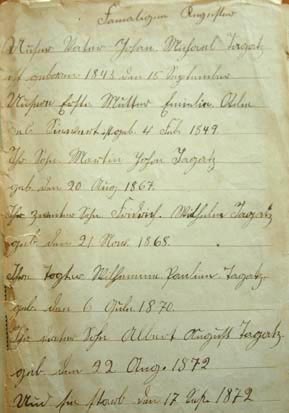 Familigen Register
Unser Vater Johan Michael Jagatz
ist geboren 1843 den 15 September
Unsere Erste Mütter Emielie Ädle
geb. geb. 4 Feb. 1849.
Ihr Sohn Martin John Jagatz
geb. den 20 Aug 1867.
Ihr zweiter Sohn Friedrich Wilhelm Jagatz
geb. den 21 Nov. 1868.
Ihre Togter Wilhemine Paulien Jagatz
geb. den 6 1870.
Ihr Sohn Albert August Jagatz
geb. den 22 Aug. 1872
Und sie starb den 17 1872